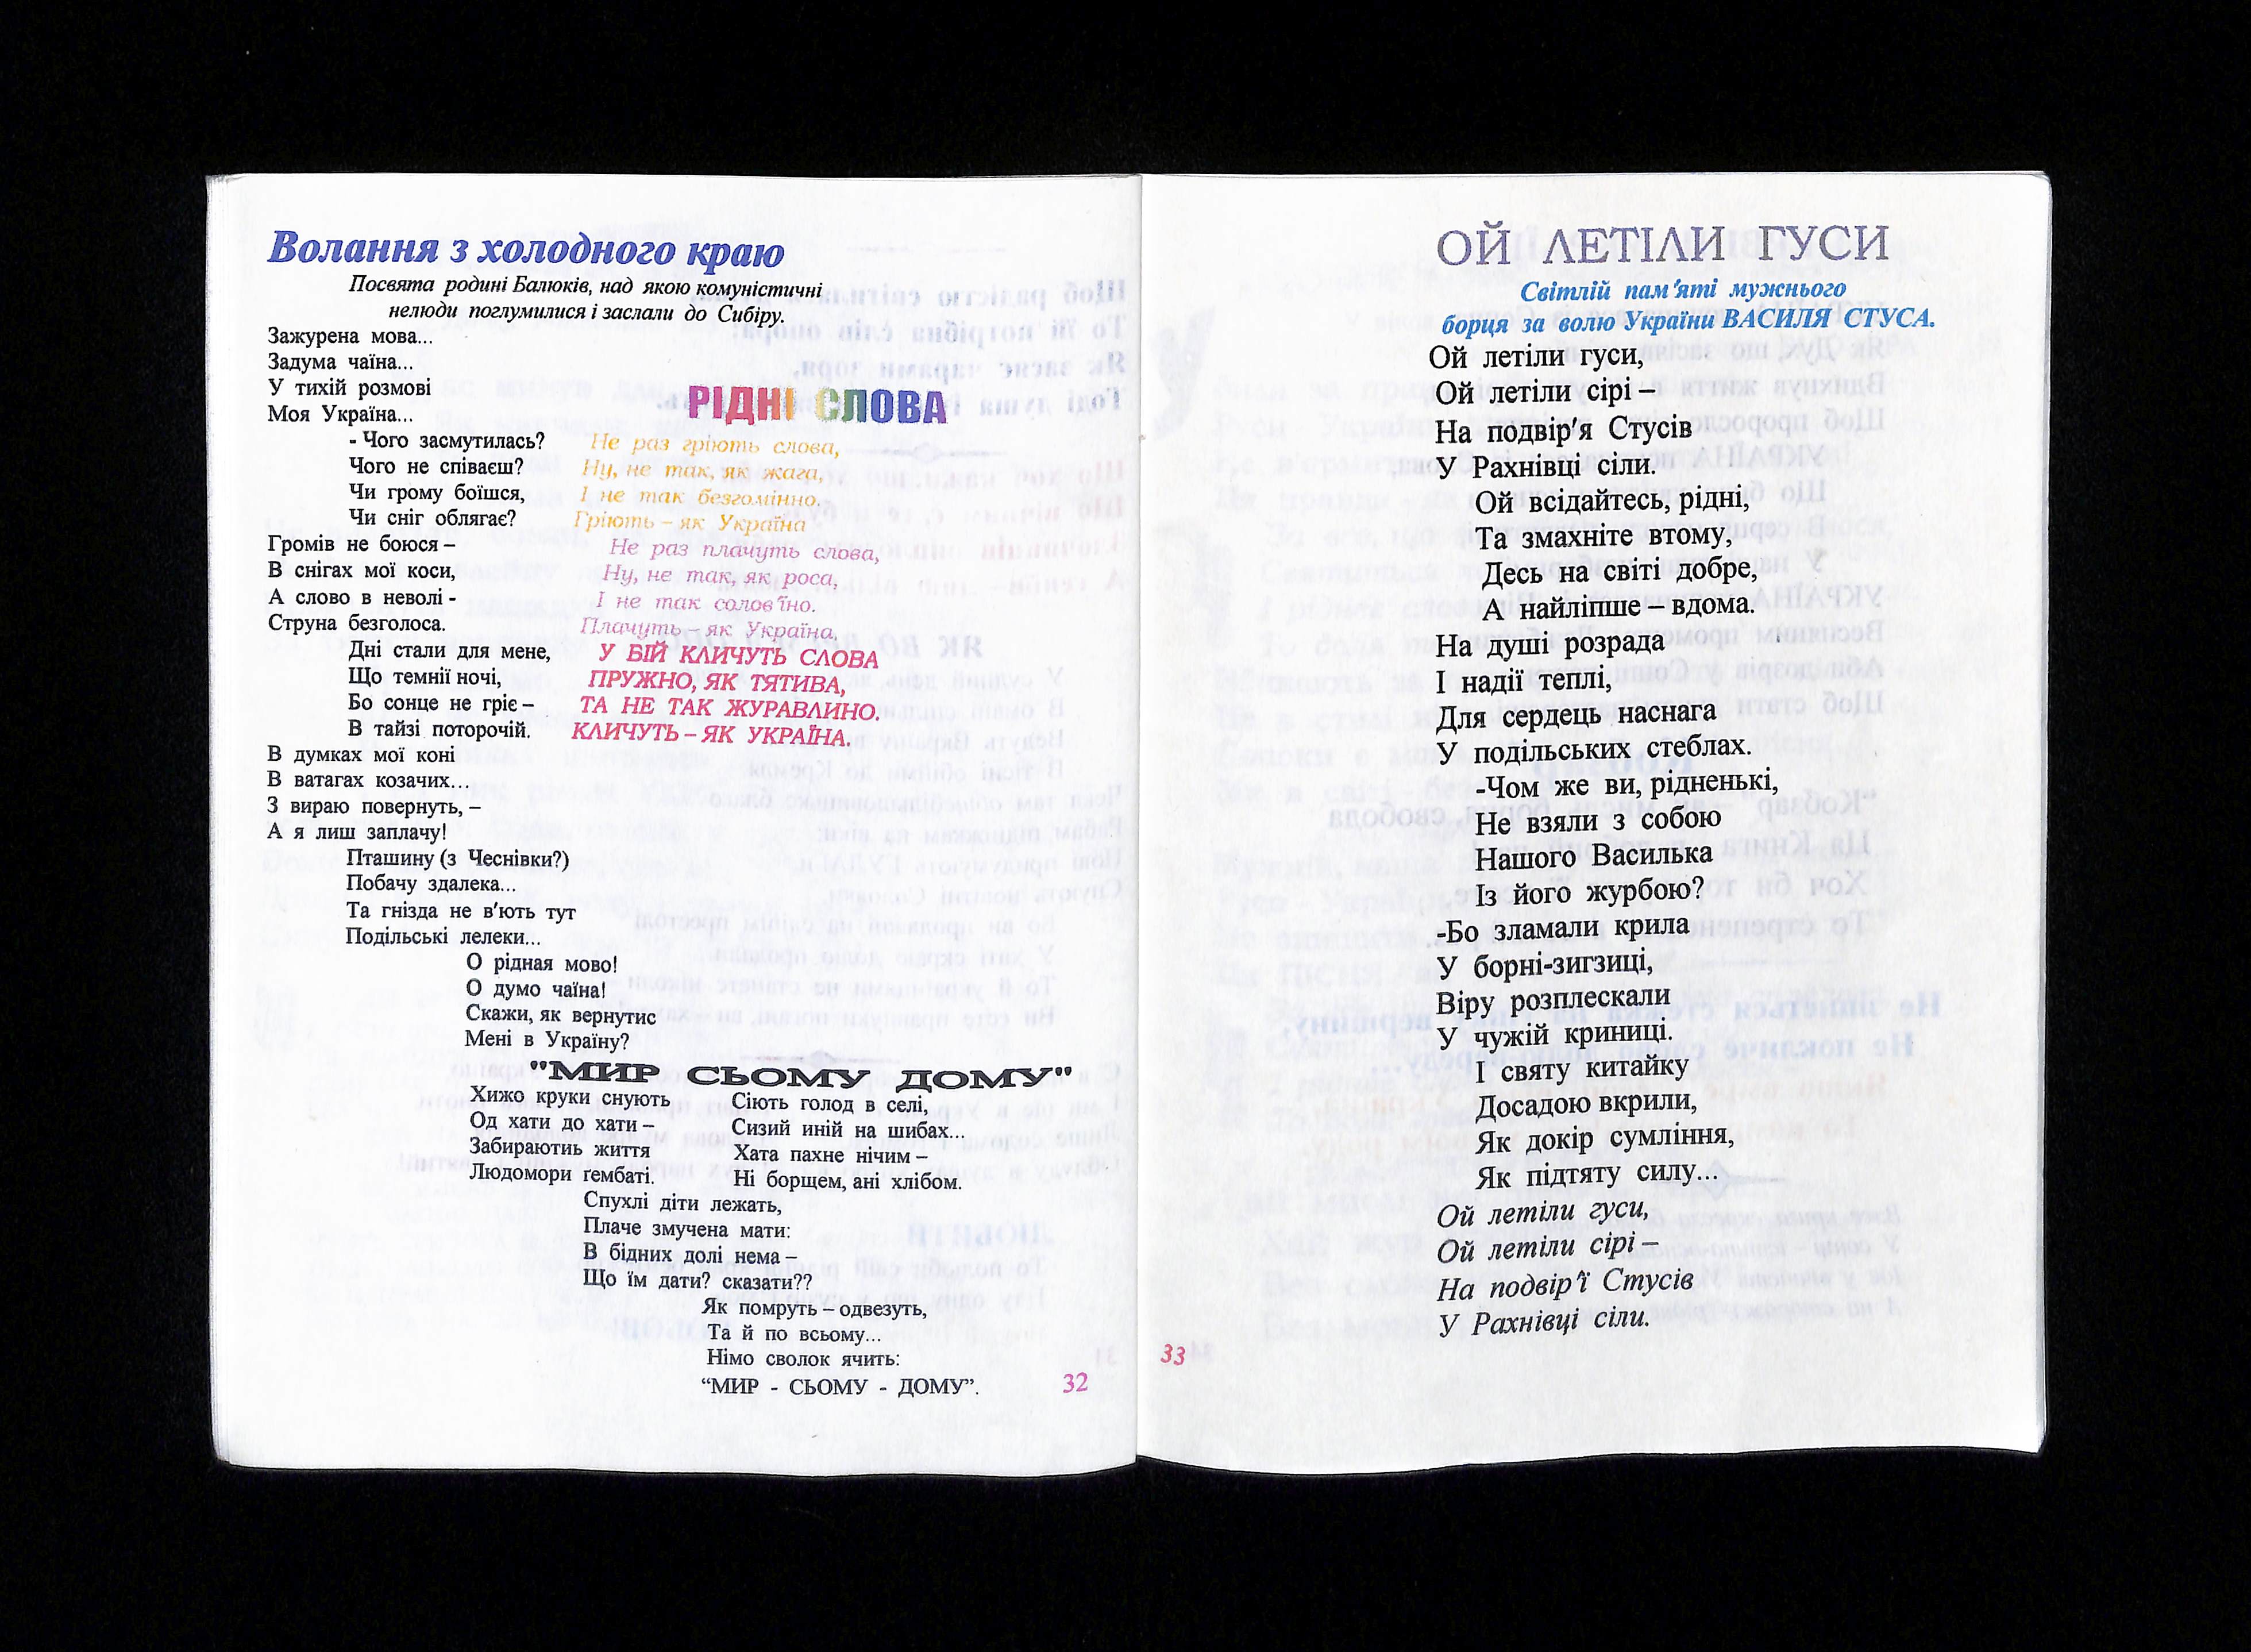 Волання з холодного краю
Посвята родині Балюків, над якою комуністичні
нелюди поглумилися і заслали до Сибіру.
Зажурена мова...
Задума чаїна...
У тихій розмові
Моя Україна...
- Чого засмутилась?
Чого не співаєш?
Чи грому боїшся,
Чи сніг облягає?
Громів не боюся –
В снігах мої коси,
А слово в неволі -
Струна безголоса.
Дні стали для мене,
Що темнії ночі,
Бо сонце не гріє –
В тайзі поторочій.
В думках мої коні
В ватагах козачих...
З вираю повернуть, –
А я лиш заплачу!
Пташину (з Чеснівки?)
Побачу здалека...
Та гнізда не в'ють тут
Подільські лелеки...
О рідная мово!
О думо чаїна!
Скажи, як вернутис
Мені в Україну?
РІДНІ СЛОВА
Не раз гріють слова,
Ну, не так, як жага,
І не так безгомінно.
Гріють – як Україна
Не раз плачуть слова,
Ну, не так, як роса,
І не так солов'їно.
Плачуть – як Україна.
У БІЙ КЛИЧУТЬ СЛОВА
ПРУЖНО, ЯК ТЯТИВА,
ТА НЕ ТАК ЖУРАВЛИНО.
КЛИЧУТЬ – ЯК УКРАЇНА.
"МИР СЬОМУ ДОМУ"
Хижо круки снують
Од хати до хати –
Забираютиь життя
Людомори ґембаті.
Сіють голод в селі,
Сизий иній на шибах...
Хата пахне нічим –
Ні борщем, ані хлібом.
Спухлі діти лежать,
Плаче змучена мати:
В бідних долі нема –
Що їм дати? сказати??
Як помруть – одвезуть,
Та й по всьому...
Німо сволок ячить:
“МИР - СЬОМУ - ДОМУ”.
32
ОЙ ЛЕТІЛИ ГУСИ
Світлій пам'яті мужнього
борця за волю України ВАСИЛЯ СТУСА.
Ой летіли гуси,
Ой летіли сірі –
На подвір'я Стусів
У Рахнівці сіли.
Ой всідайтесь, рідні,
Та змахніте втому,
Десь на світі добре,
А найліпше – вдома.
На душі розрада
І надії теплі,
Для сердець наснага
У подільських стеблах.
-Чом же ви, рідненькі,
Не взяли з собою
Нашого Василька
Із його журбою?
-Бо зламали крила
У борні-зигзиці,
Віру розплескали
У чужій криниці.
І святу китайку
Досадою вкрили,
Як докір сумління,
Як підтяту силу...
Ой летіли гуси,
Ой летіли сірі –
На подвір'ї Стусів
У Рахнівці сіли.
33